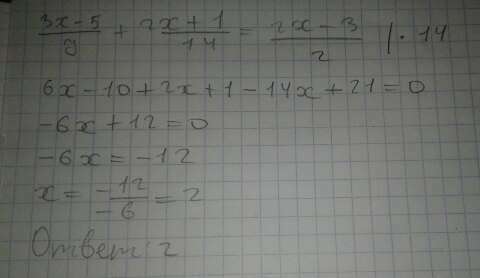 (3x-5)/7 + (2x+1)/14 = (2x-3)/2 |·14
6x-10+2x+1-14x+21=0
-6x+12=0
-6x=-12
x= (-12)/(-6) =2
Ответ: 2